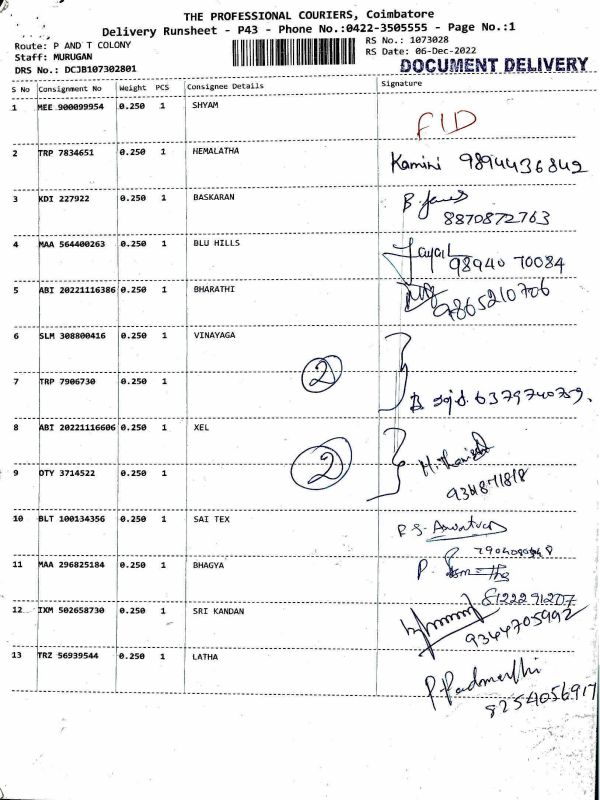 THE PROFESSIONAL COURIERS, Coimbatore
Delivery Runsheet - P43 - Phone No.:0422-3505555 - Page No.:1
Route: P AND T COLONY
RS No.: 1073028
Staff: MURUGAN
RS Date: 06-Dec-2022
DRS No.: DCJB107302801
DOCUMENT DELIVERY
S No Consignment No Weight PCS Consignee Details Signature
1 MEE 900099954 0.250 1 SHYAM
FID
2 TRP 7834651 0.250 1 HEMALATHA
Kamini 9894436842
3 KDI 227922 0.250 1 BASKARAN
8870872763
4 MAA 564400263 0.250 1 BLU HILLS
98940 70084
5 ABI 20221116386 0.250 1 BHARATHI
9865210706
6 SLM 308800416 0.250 1 VINAYAGA
2
7 TRP 7906730 0.250 1
6379740759.
8 ABI 20221116606 0.250 1 XEL
2
9 DTY 3714522 0.250 1
10 BLT 100134356 0.250 1 SAI TEX
11 MAA 296825184 0.250 1 BHAGYA
8122291207
12 IXM 502658730 0.250 1 SRI KANDAN
9344705992
13 TRZ 56939544 0.250 1 LATHA
8254056917